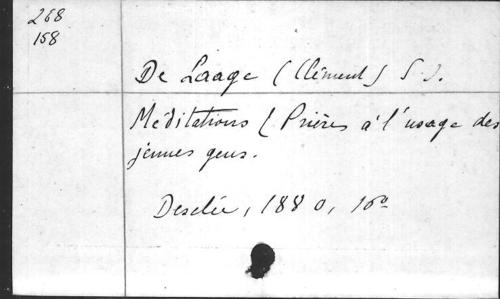 268
158
De Laage (Clément) S. J.
Méditations & Prières à l'usage des
jeunes gens.
Desclée, 1880, 16º